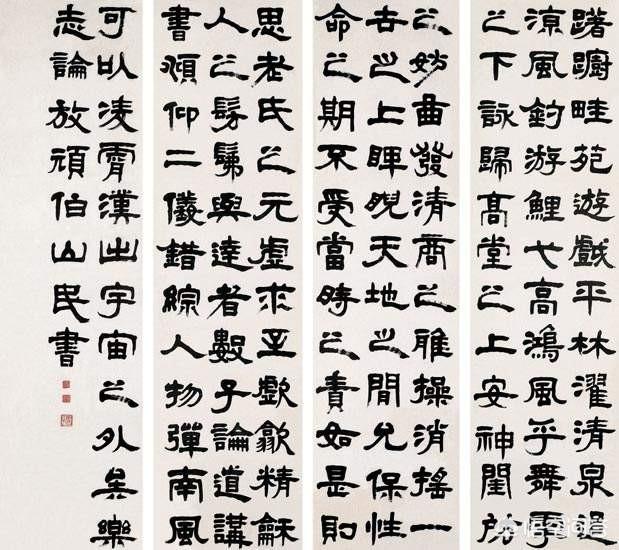 躇躕畦苑遊戲平林濯清泉追
涼風釣游鯉弋高鴻風乎舞雩
之下詠歸高堂之上安神閨房
之妙曲發清商之雅操消搖一
古之上睥睨天地之間允保性
命之期不受當時之責如是則
思老氏之元虛求至歔歙精龢
人之髣髴與達者數子論道講
書頫仰二儀錯綜人物彈南風
可以凌霄漢出宇宙之外矣樂
志論放頑伯山民書
悟空问答